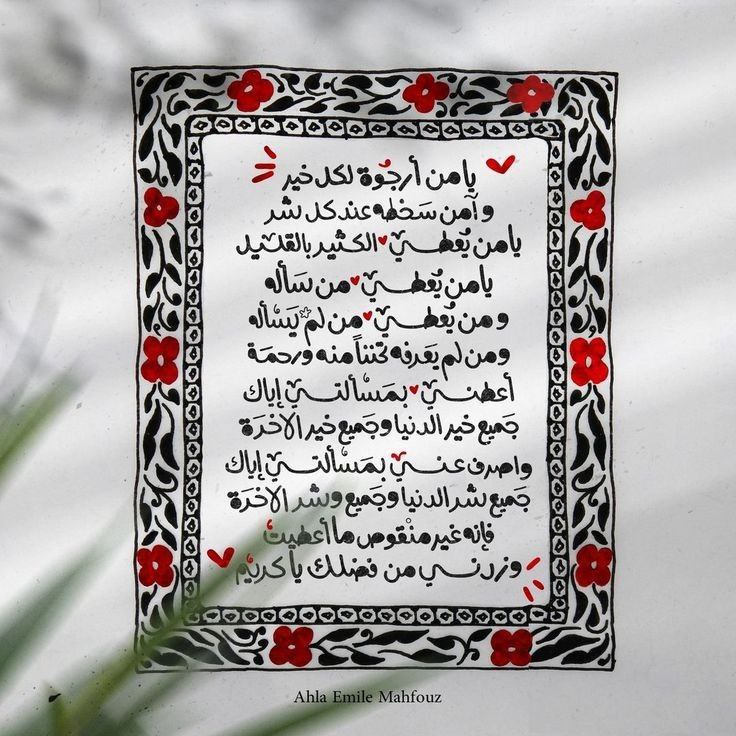 يا من أرجُوة لكل خير
و آمن سَخطه عند كل شر
يا من يُعطي الكثير بالقليل
يا من يُعطي من سَأله
و من يُعطي من لمْ يَسْأله
ومن لم يَعرفه تحنناً منه ورحمة
أعطني بمَسْألتي إياك
جَميع خير الدنيا وجَميع خير الاخرَة
واصرف عني بمَسْألتي إياك
جَميع شر الدنيا وجميع وشر الاخرَة
فإنه غير منْقوص ما أعطيتَ
وزدني من فضلك يا كريم
Ahla Emile Mahfouz